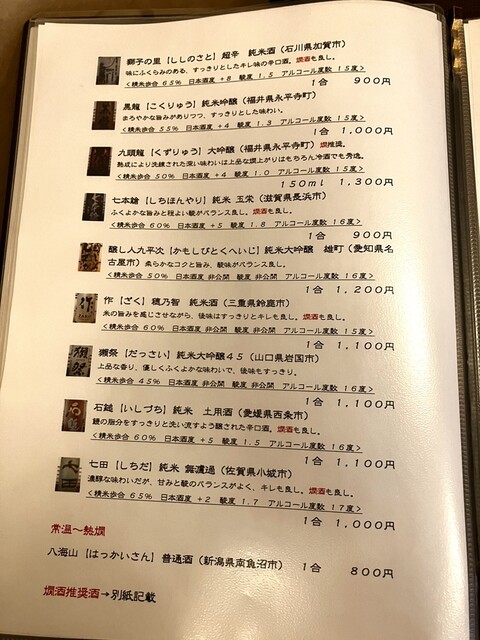 獅子の里【ししのさと】超辛 純米酒(石川県加賀市)
味にふくらみのある、すっきりとしたキレ味の辛口酒。燗酒も良し。
<精米歩合 65% 日本酒度 +8 酸度 1.5 アルコール度数 15度>
1合 900円
黒龍【こくりゅう】純米吟醸(福井県永平寺町)
まろやかな旨みがありつつ、すっきりとした味わい。
<精米歩合 55% 日本酒度 +4 酸度 1.3 アルコール度数 15度>
1合 1,000円
九頭龍【くずりゅう】大吟醸(福井県永平寺町)燗推奨。
熟成により洗練された深い味わいは上品な燗上がりはもちろん冷酒でも秀逸。
<精米歩合 50% 日本酒度 +4 酸度 1.0 アルコール度数 15度>
150ml 1,300円
七本鎗【しちほんやり】純米 玉栄(滋賀県長浜市)
ふくよかな旨みと程よい酸がバランス良し。燗酒も良し。
<精米歩合 60% 日本酒度 +5 酸度 1.8 アルコール度数 16度>
1合 900円
醸し人九平次【かもしびとくへいじ】純米大吟醸 雄町(愛知県名
古屋市)柔らかなコクと旨み、酸味がバランス良し。
<精米歩合 50% 日本酒度 非公開 酸度 非公開 アルコール度数 16度>
1合 1,200円
作【ざく】穂乃智 純米酒(三重県鈴鹿市)
米の旨みを感じさせながら、後味はすっきりとキレ良し。燗酒も良し。
<精米歩合 60% 日本酒度 非公開 酸度 非公開 アルコール度数 15度>
1合 1,100円
獺祭【だっさい】純米大吟醸45(山口県岩国市)
上品な香り、優しくふくよかな味わいで、後味もすっきり。
<精米歩合 45% 日本酒度 非公開 酸度 非公開 アルコール度数 16度>
1合 1,100円
石鎚【いしづち】純米 土用酒(愛媛県西条市)
鰻の脂分をすっきりと洗い流すよう醸された辛口酒。燗酒も良し。
<精米歩合 60% 日本酒度 +5 酸度 1.5 アルコール度数 16度>
1合 1,100円
七田【しちだ】純米 無濾過(佐賀県小城市)
濃醇な味わいだが、甘みと酸のバランスがよく、キレも良し。燗酒も良し。
<精米歩合 65% 日本酒度 +2 酸度 1.7 アルコール度数 17度>
1合 1,000円
常温~熱燗
八海山【はっかいさん】普通酒(新潟県南魚沼市) 1合 800円
燗酒推奨酒→別紙記載